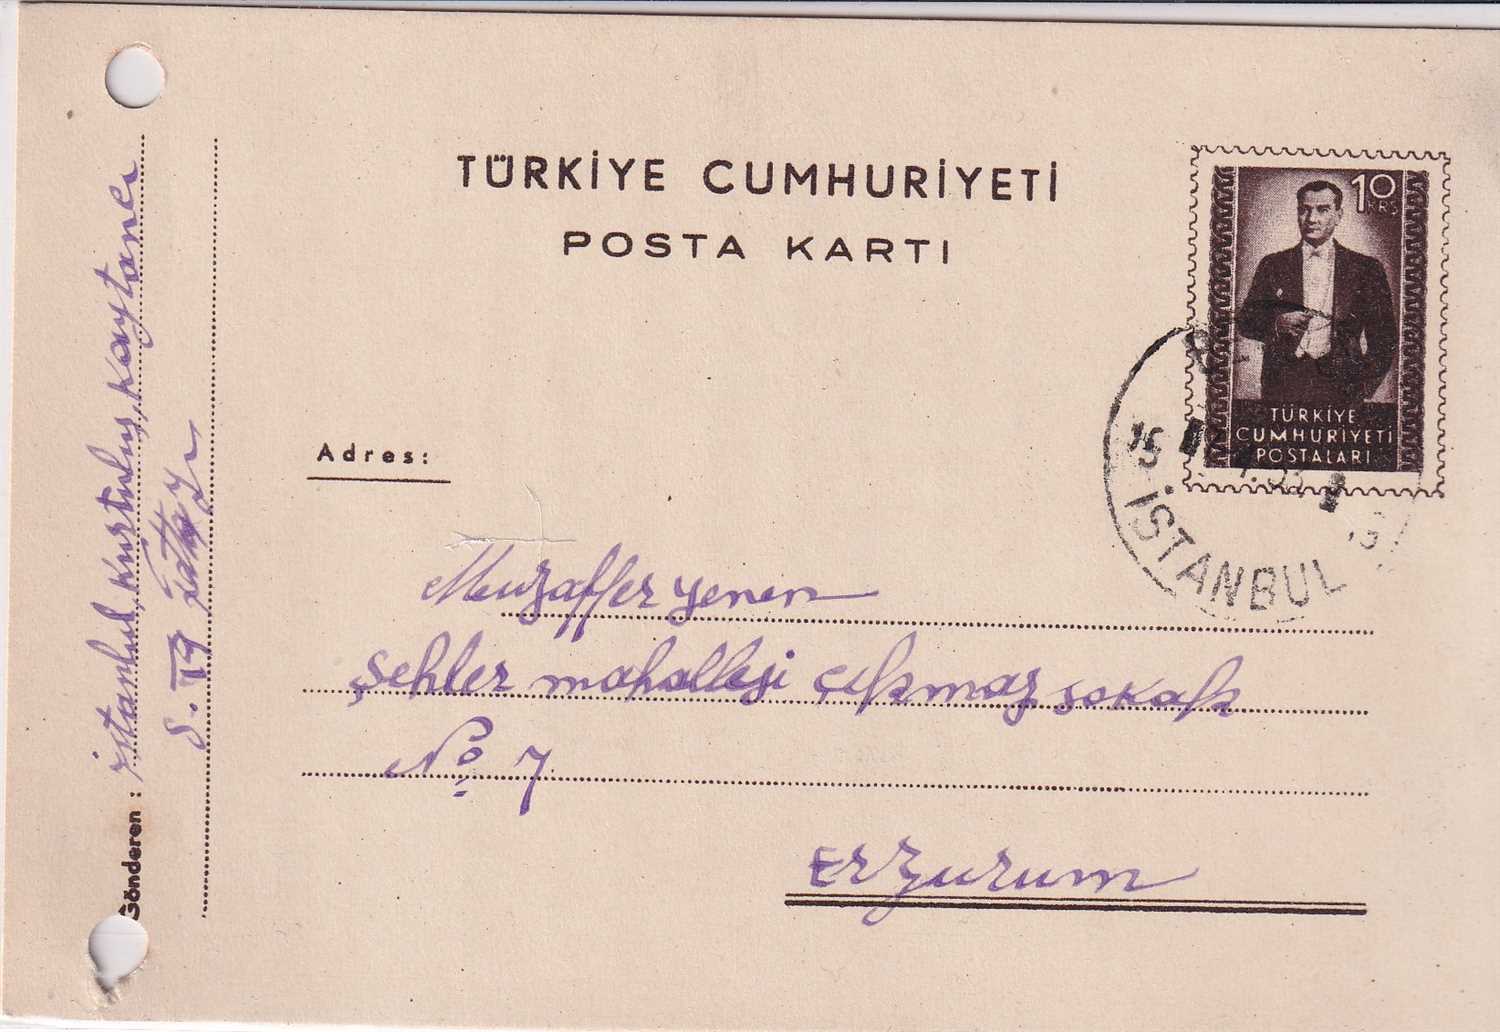 TÜRKİYE CUMHURİYETİ
POSTA KARTI
10
KRŞ
TÜRKİYE
CUMHURİYETİ
POSTALARI
İSTANBUL
Adres:
Muzaffer Yenen
Şehler mahallesi çıkmaz sokak
No: 7
Erzurum
Gönderen :
İstanbul, Kurtuluş, Kaytancı
S.